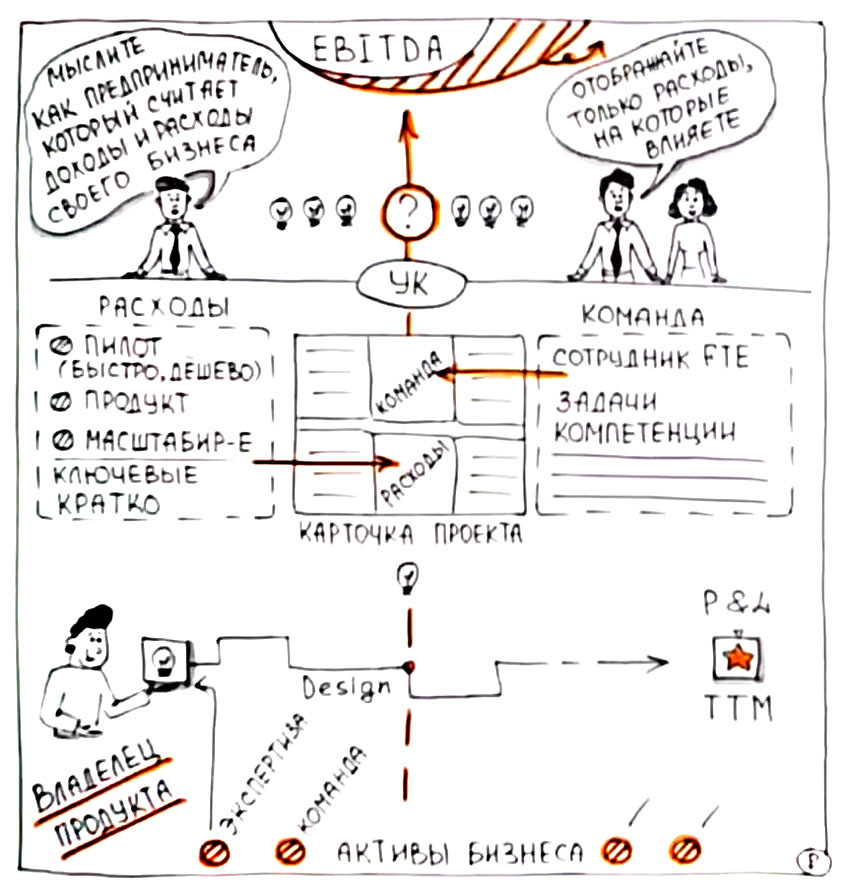 EBITDA
МЫСЛИТЕ
КАК ПРЕДПРИНИМАТЕЛЬ,
КОТОРЫЙ СЧИТАЕТ
ДОХОДЫ И РАСХОДЫ
СВОЕГО БИЗНЕСА
ОТОБРАЖАЙТЕ
ТОЛЬКО РАСХОДЫ,
НА КОТОРЫЕ
ВЛИЯЕТЕ
?
УК
РАСХОДЫ
ПИЛОТ
(БЫСТРО, ДЕШЕВО)
ПРОДУКТ
МАСШТАБИР-Е
КЛЮЧЕВЫЕ
КРАТКО
КОМАНДА
РАСХОДЫ
КАРТОЧКА ПРОЕКТА
КОМАНДА
СОТРУДНИК FTE
ЗАДАЧИ
КОМПЕТЕНЦИИ
Design
P&L
TTM
ВЛАДЕЛЕЦ
ПРОДУКТА
ЭКСПЕРТИЗА
КОМАНДА
АКТИВЫ БИЗНЕСА